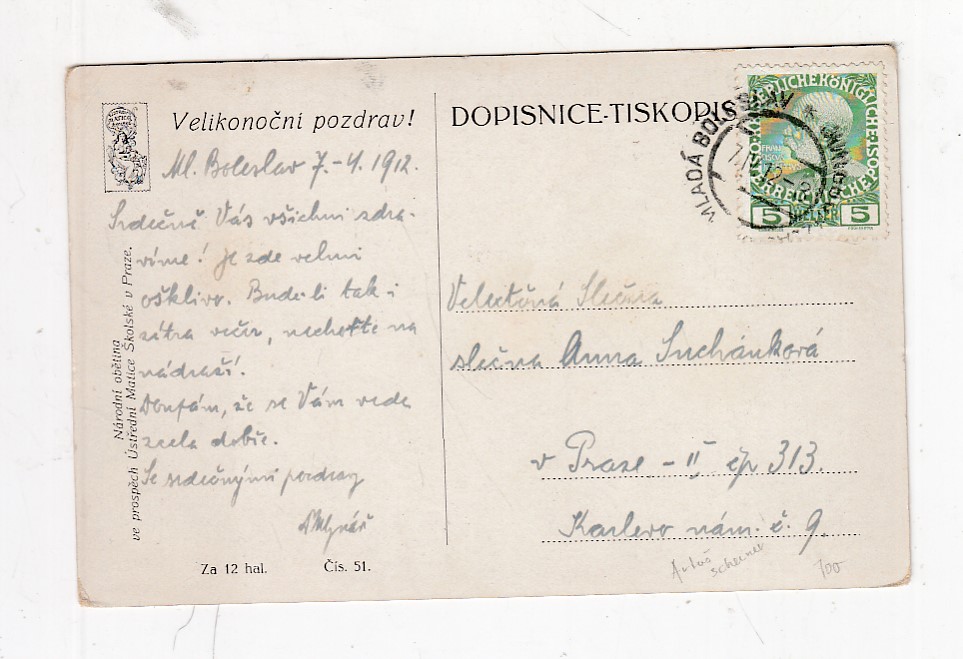 Velikonoční pozdrav!
Ml. Boleslav 7.-4. 1912.
Srdečně Vás všichni zdra-
víme! Je zde velmi
ošklivo. Bude-li tak i
zítra večer, nechoďte na
nádraží.
Doufám, že se Vám vede
zcela dobře.
Se srdečnými pozdravy
Národní obětina
ve prospěch Ústřední Matice Školské v Praze.
Za 12 hal. Čís. 51.
DOPISNICE-TISKOPIS
MLADÁ BOLESLAV
5 HELLER 5
Velectěná Slečna
slečna Anna Suchánková
v Praze - II čp 313.
Karlovo nám. č. 9.
Artuš
scheiner
700